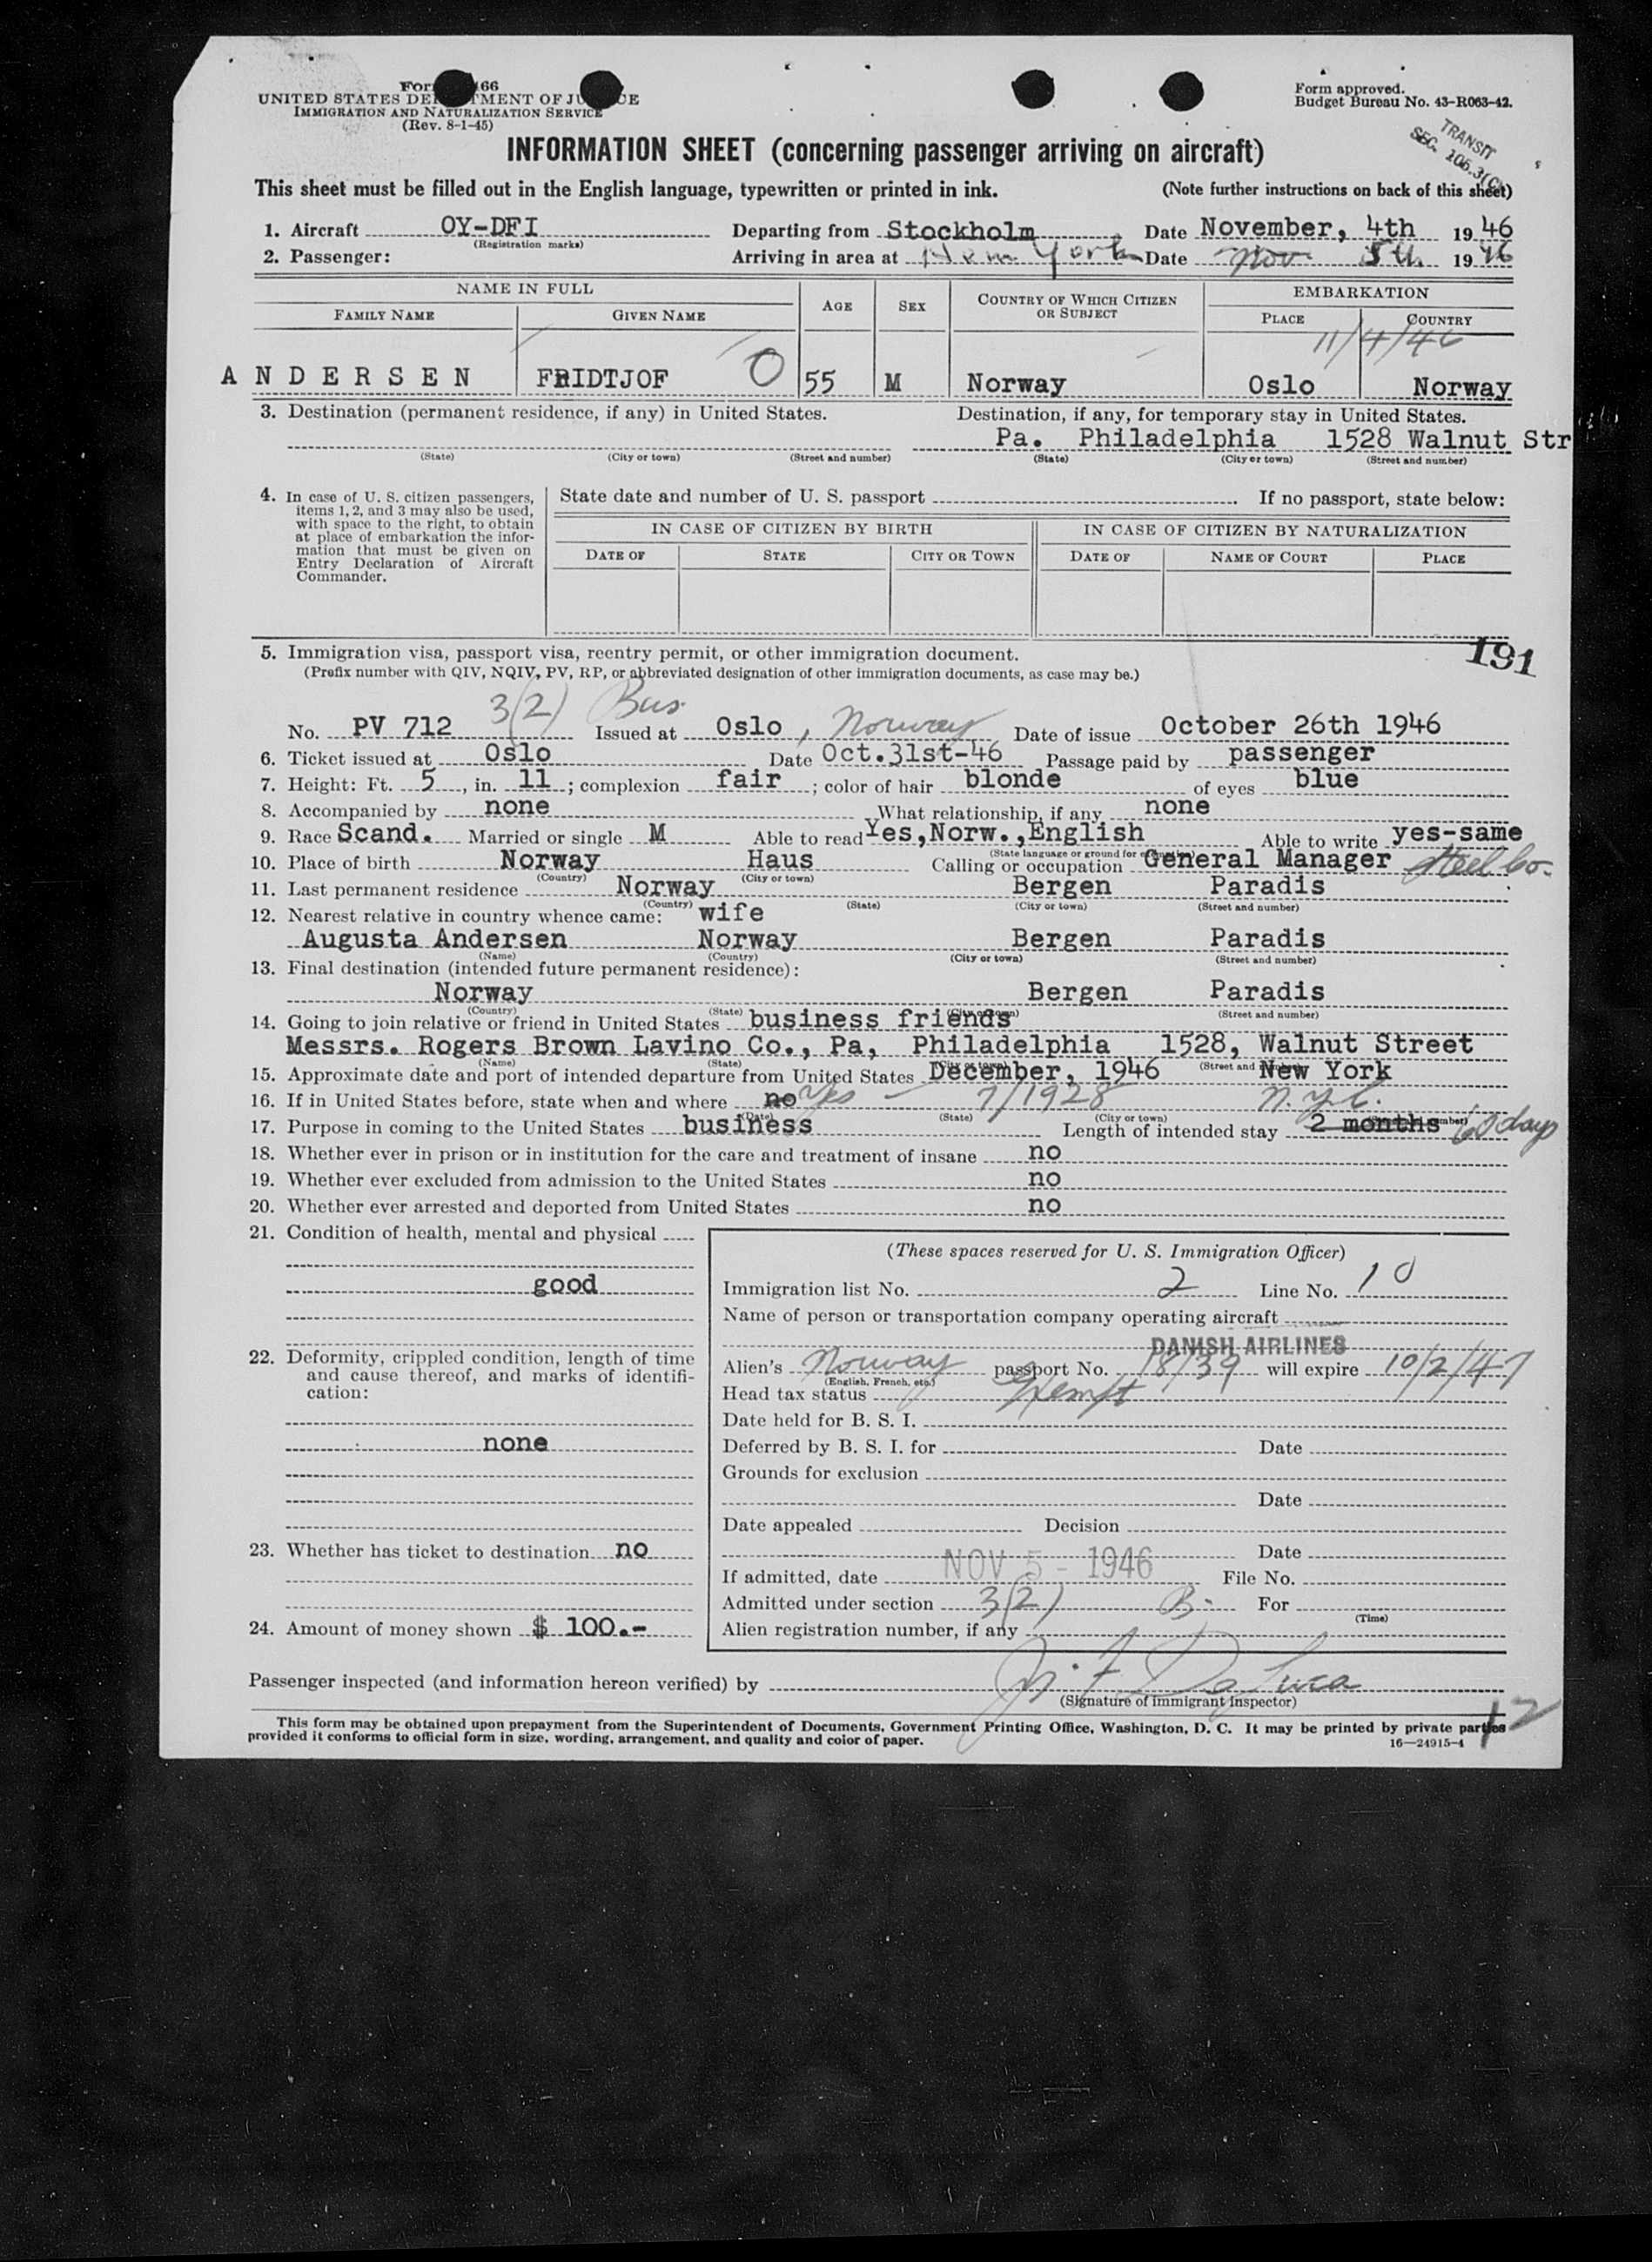 For 166
UNITED STATES DEPARTMENT OF JUSTICE
IMMIGRATION AND NATURALIZATION SERVICE
(Rev. 8-1-45)
Form approved.
Budget Bureau No. 43-R063-42.
TRANSIT
SEC. 106.3(C)
INFORMATION SHEET (concerning passenger arriving on aircraft)
This sheet must be filled out in the English language, typewritten or printed in ink. (Note further instructions on back of this sheet)
1. Aircraft OY-DFI Departing from Stockholm Date November, 4th 1946
(Registration marks)
2. Passenger: Arriving in area at New York Date Nov 5th 1946
NAME IN FULL AGE SEX COUNTRY OF WHICH CITIZEN OR SUBJECT EMBARKATION
FAMILY NAME GIVEN NAME PLACE COUNTRY
11/4/46
ANDERSEN FRIDTJOF O 55 M Norway Oslo Norway
3. Destination (permanent residence, if any) in United States. Destination, if any, for temporary stay in United States.
Pa. Philadelphia 1528 Walnut Str
(State) (City or town) (Street and number) (State) (City or town) (Street and number)
4. In case of U. S. citizen passengers, items 1, 2, and 3 may also be used, with space to the right, to obtain at place of embarkation the information that must be given on Entry Declaration of Aircraft Commander.
State date and number of U. S. passport If no passport, state below:
IN CASE OF CITIZEN BY BIRTH IN CASE OF CITIZEN BY NATURALIZATION
DATE OF STATE CITY OR TOWN DATE OF NAME OF COURT PLACE
191
5. Immigration visa, passport visa, reentry permit, or other immigration document.
(Prefix number with QIV, NQIV, PV, RP, or abbreviated designation of other immigration documents, as case may be.)
3(2) Bus.
No. PV 712 Issued at Oslo, Norway Date of issue October 26th 1946
6. Ticket issued at Oslo Date Oct.31st-46 Passage paid by passenger
7. Height: Ft. 5, in. 11; complexion fair; color of hair blonde of eyes blue
8. Accompanied by none What relationship, if any none
9. Race Scand. Married or single M Able to read Yes, Norw., English Able to write yes-same
10. Place of birth Norway Haus Calling or occupation General Manager Steel Co.
(Country) (City or town)
11. Last permanent residence Norway Bergen Paradis
(Country) (State) (City or town) (Street and number)
12. Nearest relative in country whence came: wife
Augusta Andersen Norway Bergen Paradis
(Name) (Country) (City or town) (Street and number)
13. Final destination (intended future permanent residence):
Norway Bergen Paradis
(Country) (State) (City or town) (Street and number)
14. Going to join relative or friend in United States business friends
Messrs. Rogers Brown Lavino Co., Pa, Philadelphia 1528, Walnut Street
(Name) (State) (Street and number)
15. Approximate date and port of intended departure from United States December, 1946 New York
16. If in United States before, state when and where no Yes - 7/1928 N.Y.C.
(Date) (State) (City or town)
17. Purpose in coming to the United States business Length of intended stay 2 months 60 days
18. Whether ever in prison or in institution for the care and treatment of insane no
19. Whether ever excluded from admission to the United States no
20. Whether ever arrested and deported from United States no
21. Condition of health, mental and physical
good
22. Deformity, crippled condition, length of time and cause thereof, and marks of identification:
none
23. Whether has ticket to destination no
24. Amount of money shown $ 100.-
(These spaces reserved for U. S. Immigration Officer)
Immigration list No. 2 Line No. 10
Name of person or transportation company operating aircraft
DANISH AIRLINES
Alien's Norway passport No. 18139 will expire 10/2/47
(English, French, etc.)
Head tax status Exempt
Date held for B. S. I.
Deferred by B. S. I. for Date
Grounds for exclusion
Date
Date appealed Decision
Date
If admitted, date NOV 5 - 1946 File No.
Admitted under section 3(2) B. For
(Time)
Alien registration number, if any
Passenger inspected (and information hereon verified) by
(Signature of Immigrant Inspector)
12
This form may be obtained upon prepayment from the Superintendent of Documents, Government Printing Office, Washington, D. C. It may be printed by private parties
provided it conforms to official form in size, wording, arrangement, and quality and color of paper. 16—24915-4